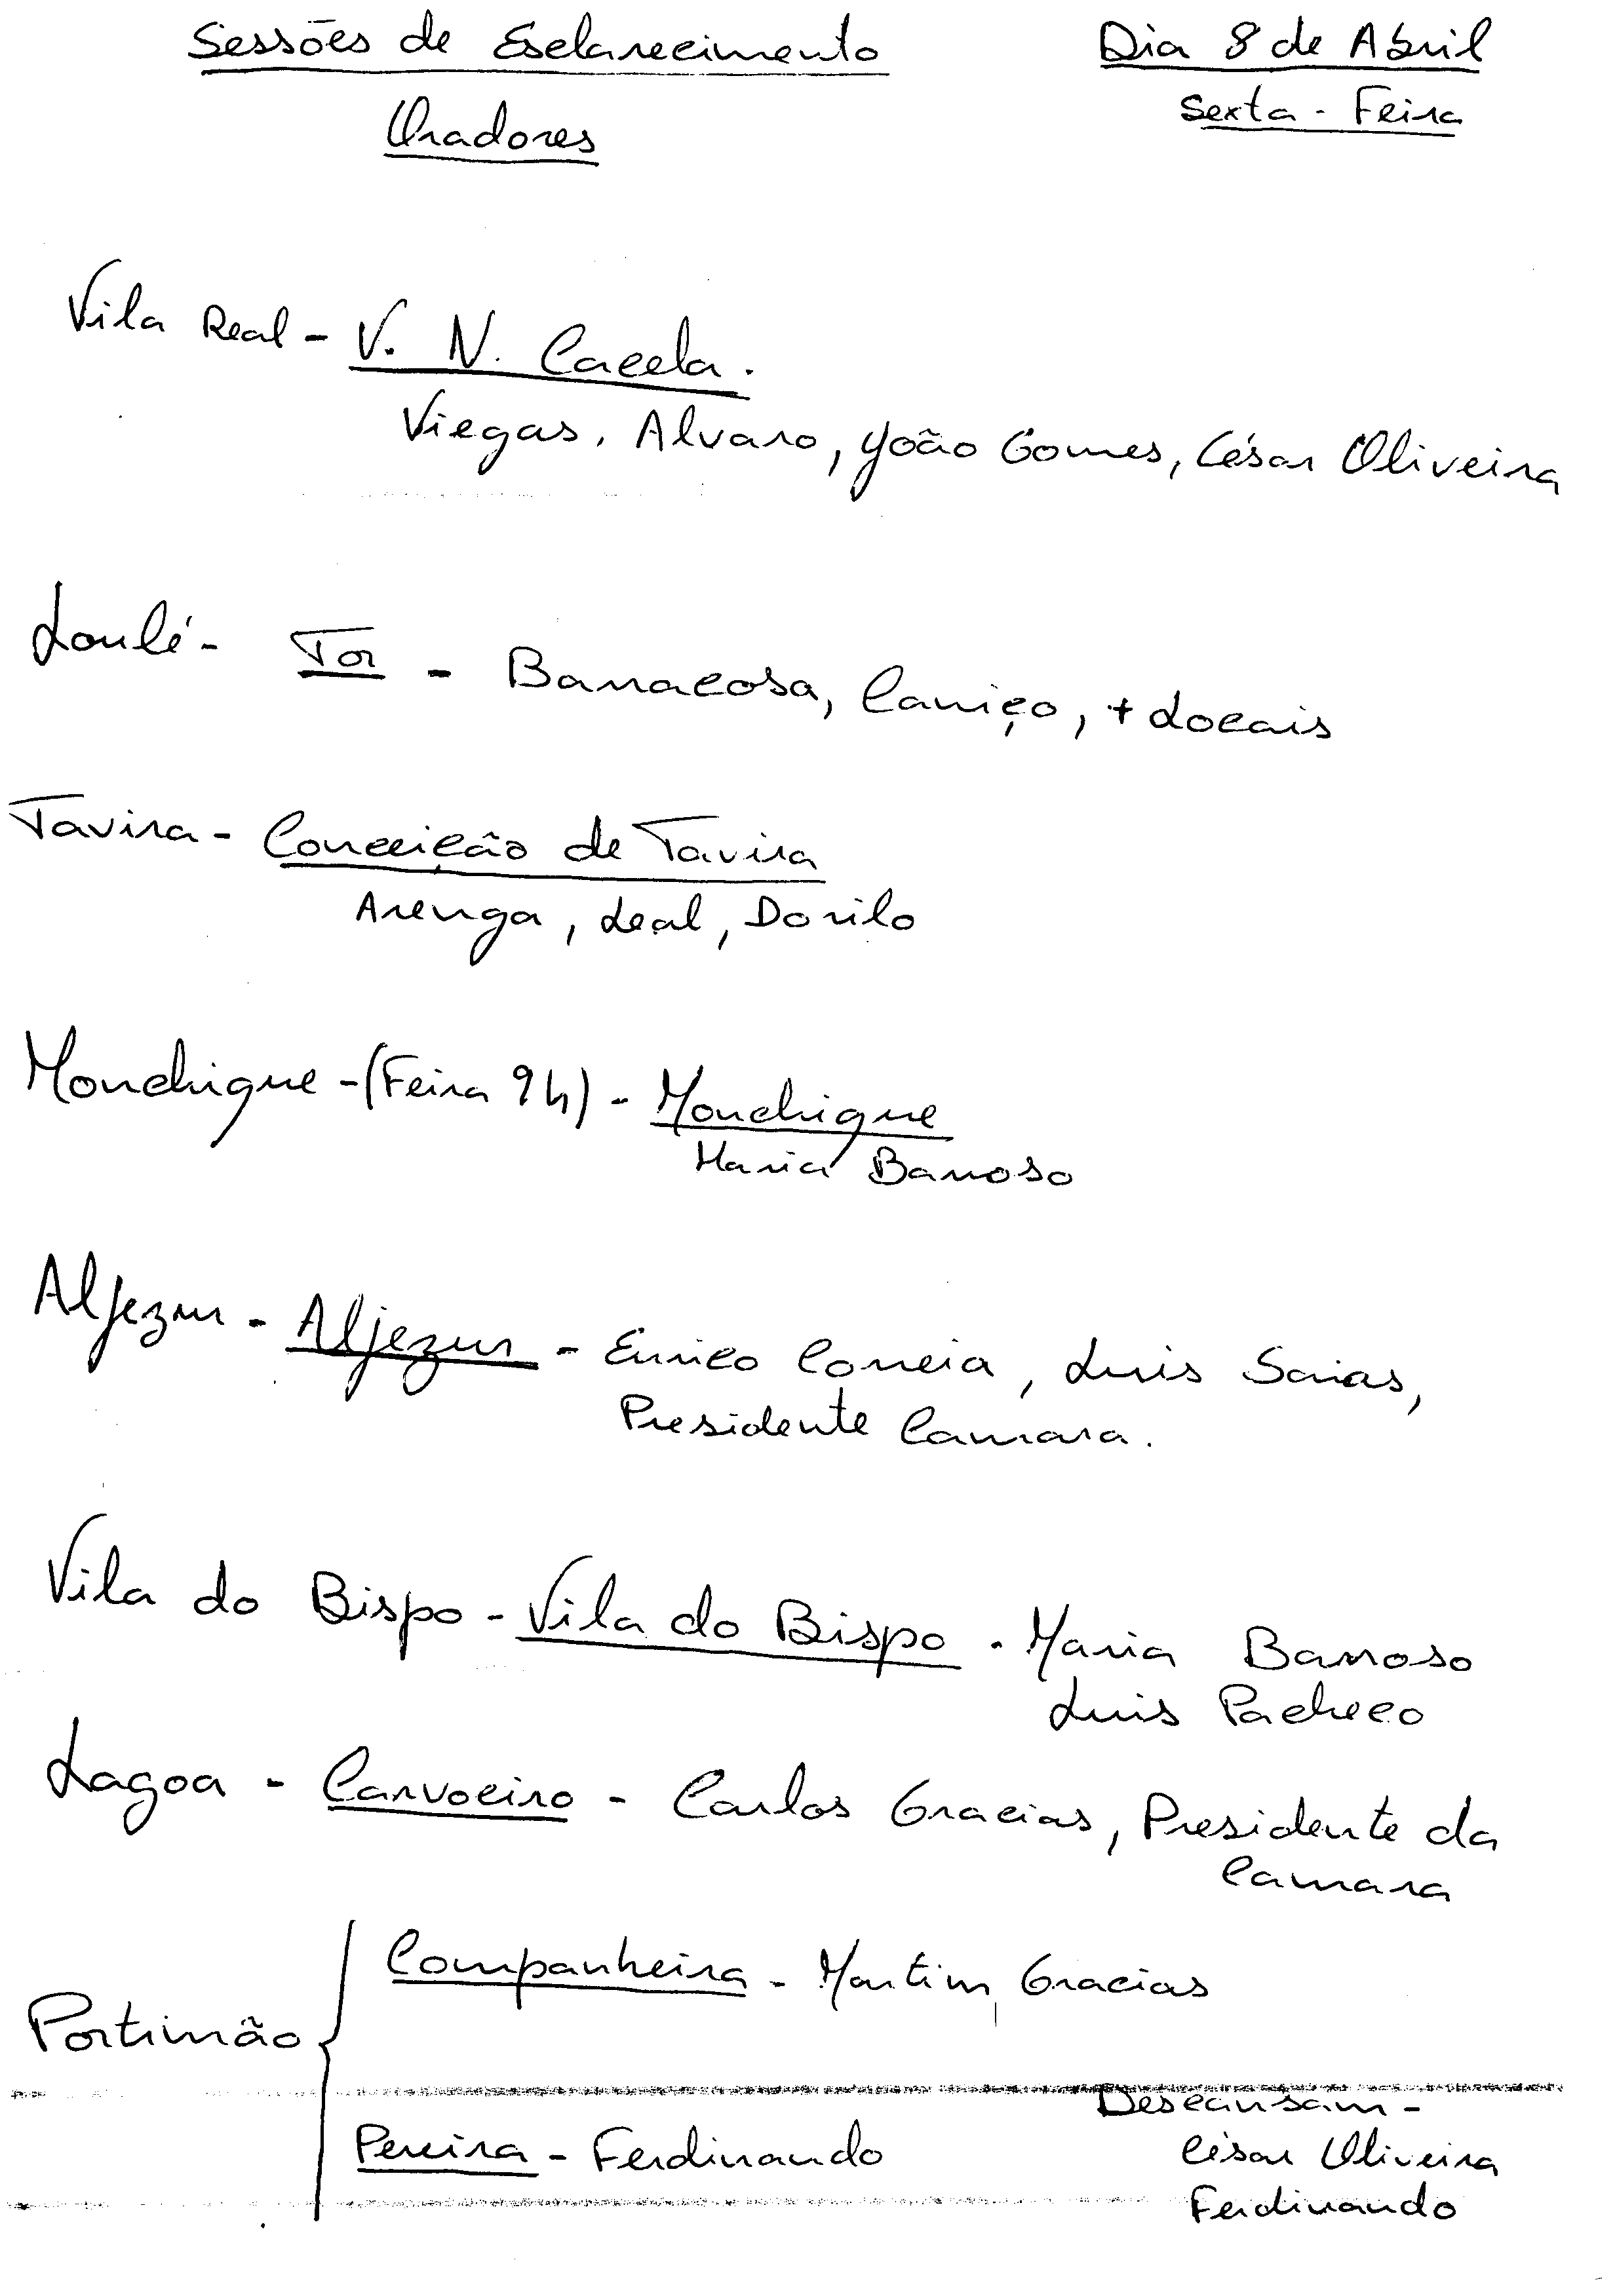 Sessões de Esclarecimento
Dia 8 de Abril
Oradores
Sexta - Feira
Vila Real - V. N. Cacela.
Viegas, Alvaro, João Gomes, César Oliveira
Loulé - Tor - Barracosa, Carriço, + Locais
Tavira - Conceição de Tavira
Arenga, Leal, Dorilo
Monchique - (Feira 9h) - Monchique
Maria Barroso
Aljezur - Aljezur - Eurico Correia, Luis Saias,
Presidente Camara.
Vila do Bispo - Vila do Bispo - Maria Barroso
Luis Pacheco
Lagoa - Carvoeiro - Carlos Gracias, Presidente da
Camara
Companheira - Martim Gracias
Portimão
Descansam -
Pereira - Ferdinando
César Oliveira
Ferdinando